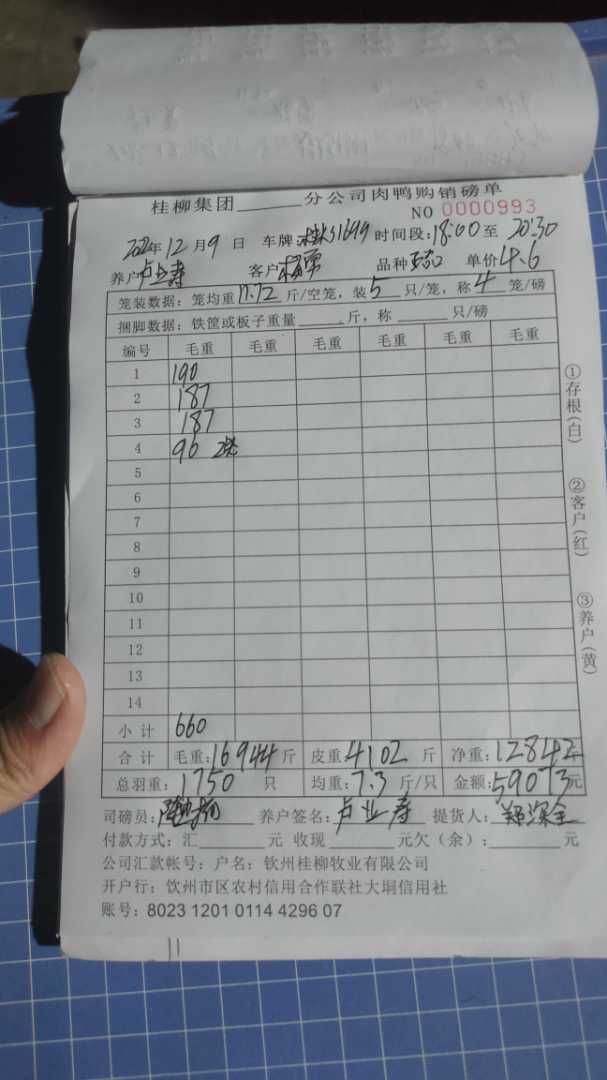 桂柳集团______分公司肉鸭购销磅单
NO 0000993
年12月9日 车牌 S1699 时间段:18:00至20:30
养户 卢业寿 客户 杨 品种 单价4.6
笼装数据:笼均重17.72斤/空笼,装5只/笼,称4笼/磅
捆脚数据:铁筐或板子重量______斤,称______只/磅
编号 毛重 毛重 毛重 毛重 毛重 毛重
1 190
2 187
3 187
4 96 2笼
5
6
7
8
9
10
11
12
13
14
小计 660
合计 毛重:16944斤 皮重:4102斤 净重:12842斤
总羽重:1750只 均重:7.3斤/只 金额:59073元
司磅员: 养户签名:卢业寿 提货人:郑深全
付款方式:汇______元 收现______元欠(余):______元
公司汇款帐号:户名:钦州桂柳牧业有限公司
开户行:钦州市区农村信用合作联社大垌信用社
账号:8023 1201 0114 4296 07
①存根(白)
②客户(红)
③养户(黄)